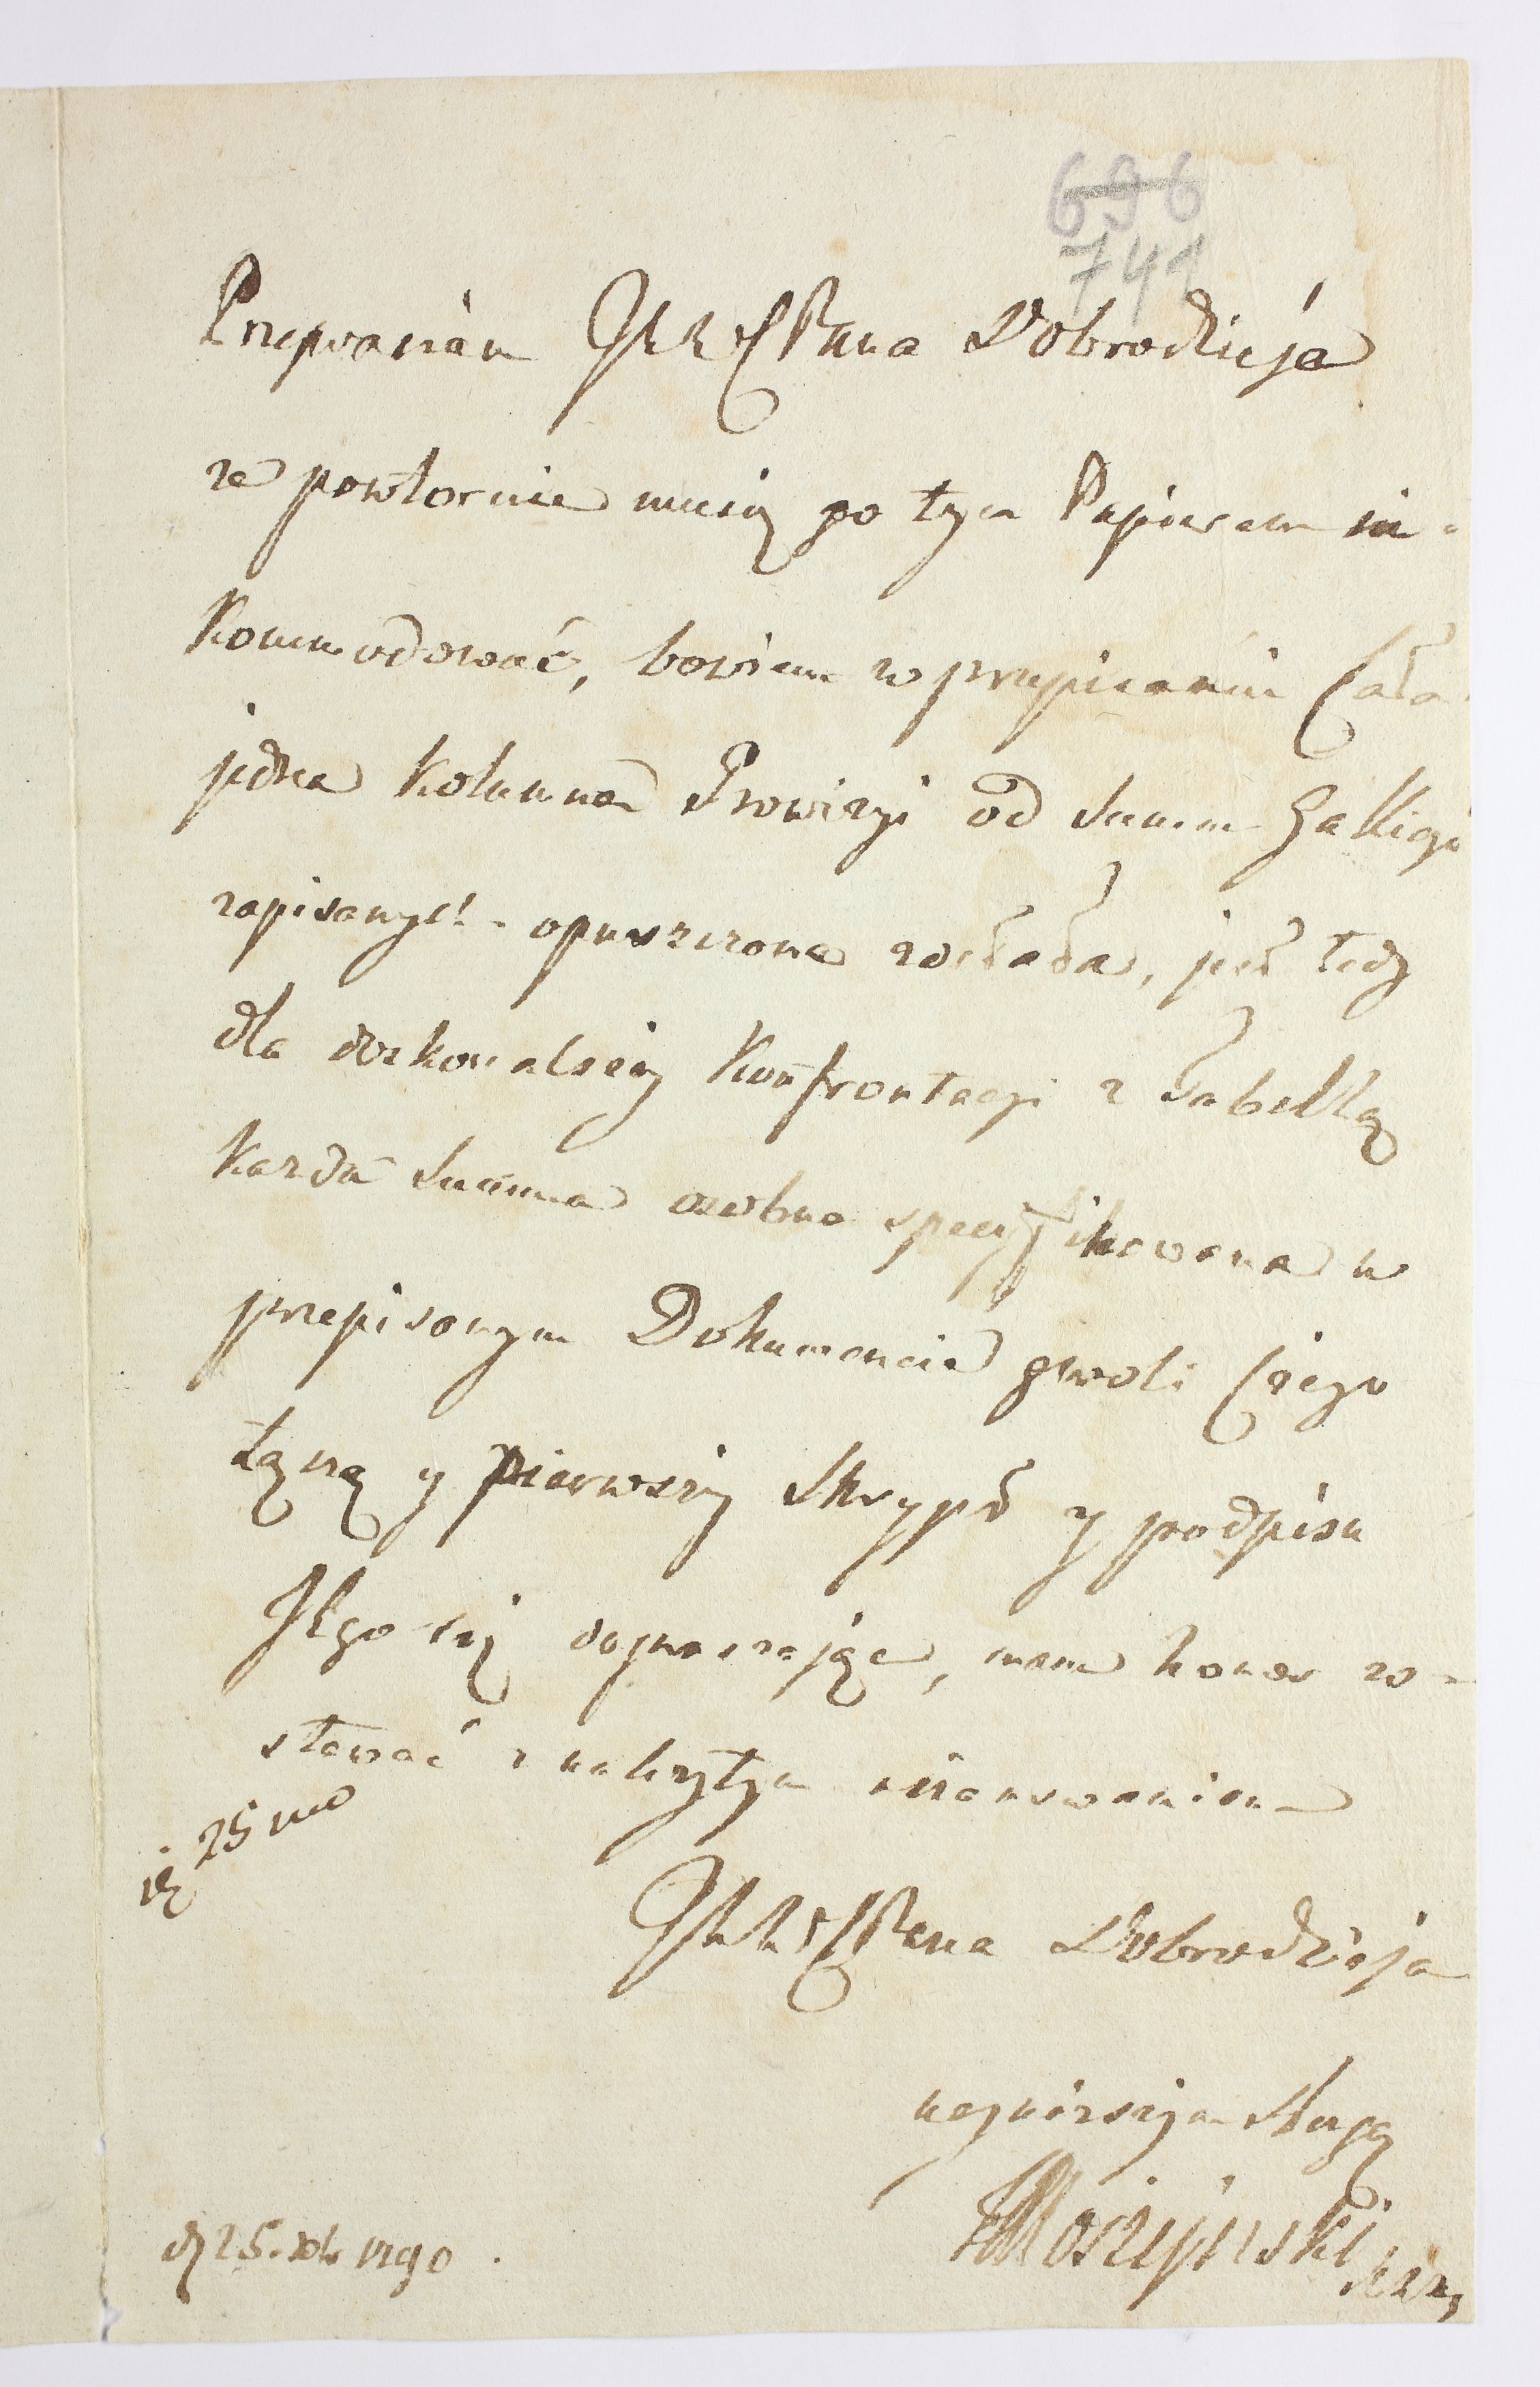 696
741
Przepraszam JWW Pana Dobrodzieja
ze powtornie muszę po tym Papierem in-
kommodować, bowiem w przepisaniu Cała
jedna kolumna Prowizyi od Summ Gallicyi
zapisanych opuszczona została, jest tedy
dla doskonalszey Konfrontacyi z Tabellą
każda Summa osobno specyfikowana w
przepisanym Dokumencie gwoli czego
łączę y pierwszy Skrypt y podpisu
JEgo się dopraszając, mam honor zo-
stawać z należytym uszanowaniem
25
JWW Pana Dobrodzieja
nayniższym Sługą
FMoszyński
d 25. Xbr 1790.